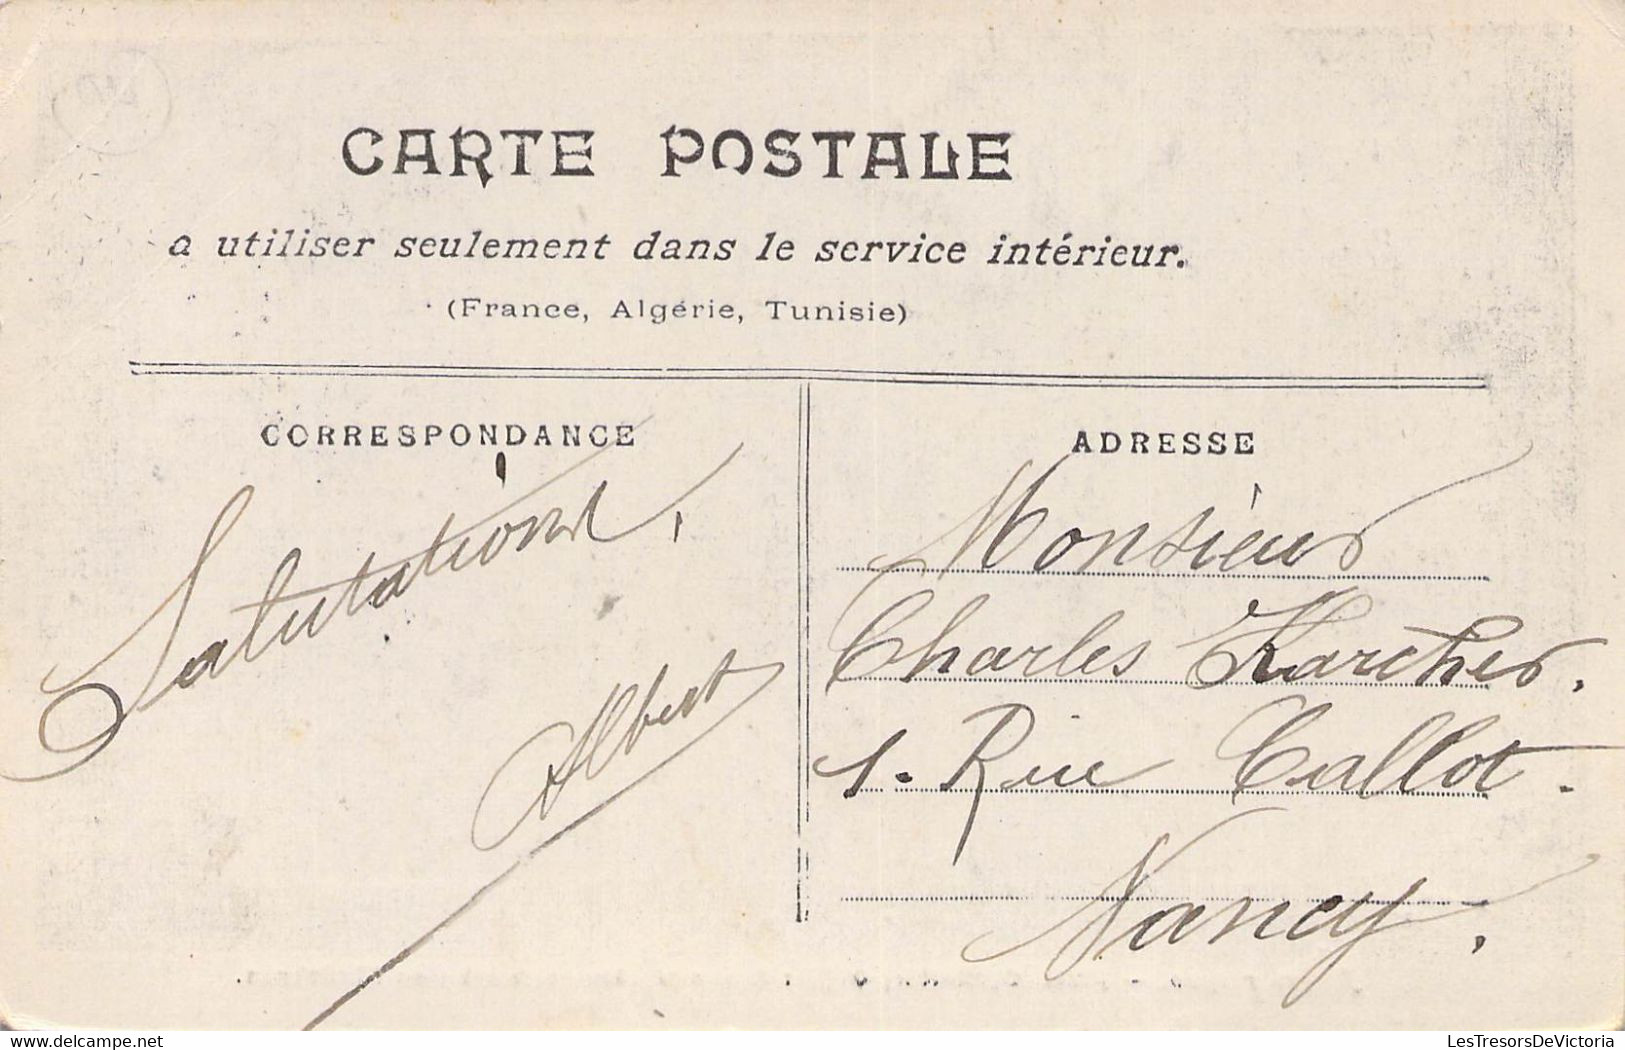 CARTE POSTALE
a utiliser seulement dans le service intérieur.
(France, Algérie, Tunisie)
CORRESPONDANCE
Salutations,
Albert
ADRESSE
Monsieur
Charles Karcher.
1. Rue Callot.
Nancy.
LesTresorsDeVictoria
delcampe.net